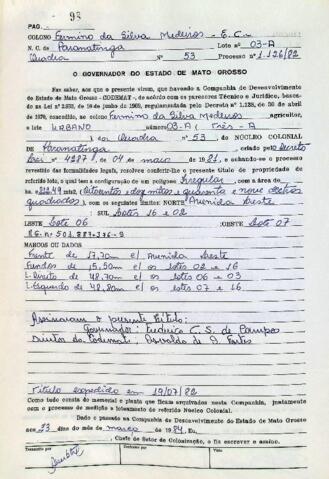 93
PAG.
COLONO Fermino da Silva Medeiros - E.C.
N. C. de Paranatinga Lote nº 03-A
Quadra nº 53 Processo 1.126/82
O GOVERNADOR DO ESTADO DE MATO GROSSO
Faz saber, aos que o presente virem, que havendo a Companhia de Desenvolvimento
do Estado de Mato Grosso - CODEMAT-, de acordo com os pareceres Técnico e Jurídico, basea-
da na Lei nº 2.023, de 19 de junho de 1969, regulamentada pelo Decreto nº 1.138, de 30 de abril
de 1970, concedido, ao colono Fermino da Silva Medeiros agricultor,
o lote URBANO número 03-A ( três - A
) Quadra nº 53, do NÚCLEO COLONIAL
de Paranatinga criado pelo Decreto
Lei nº 4287 de 04 de maio de 1981, e achando-se o processo
revestido das formalidades legais, resolvem conferir-lhe o presente título de propriedade do
referido lote, que tem a configuração de um polígono Irregular, com a área de
(Oitocentos e dez mtºs e quarenta e nove décºs
quadrados), com os seguintes limites: NORTE Avenida Leste
SUL Lotes 16 e 02
LESTE Lote 06 OESTE Lote 07
MARCOS OU DADOS
Frente de 17,70m c/ Avenida Leste
Fundos de 15,50m c/ os lotes 02 e 16
L. direito de 48,70m c/ os lotes 06 e 03
L. Esquerdo de 48,80m c/ os lotes 07 e 16
Assinaram o presente título:
Governador: Frederico C. S. de Campos
Diretor da Codemat: Osvaldo de A. Fortes
Título expedido em 19/07/82
Como tudo consta do memorial e planta que ficam arquivados nesta Companhia, juntamente
com o processo de medição e loteamento do referido Núcleo Colonial.
Dado e passado na Companhia de Desenvolvimento do Estado de Mato Grosso
aos 23 dias do mês de março de 1984 Eu,
, Chefe de Setor de Colonização, o fiz escrever e assino.
Transcrito por Conforme Visto